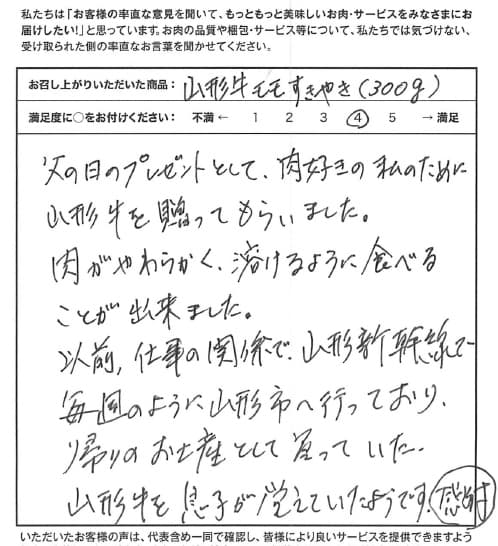 私たちは「お客様の率直な意見を聞いて、もっともっと美味しいお肉・サービスをみなさまにお
届けしたい!」と思っています。お肉の品質や梱包・サービス等について、私たちでは気づけない、
受け取られた側の率直なお言葉を聞かせてください。
お召し上がりいただいた商品: 山形牛モモすきやき(300g)
満足度に○をお付けください: 不満 ← 1 2 3 4 5 → 満足
父の日のプレゼントとして、肉好きの私のために
山形牛を贈ってもらいました。
肉がやわらかく、溶けるように食べる
ことが出来ました。
以前、仕事の関係で、山形新幹線で
毎週のように山形市へ行っており、
帰りのお土産として買っていた
山形牛を息子が覚えていたようです。感謝
いただいたお客様の声は、代表含め一同で確認し、皆様により良いサービスを提供できますよう